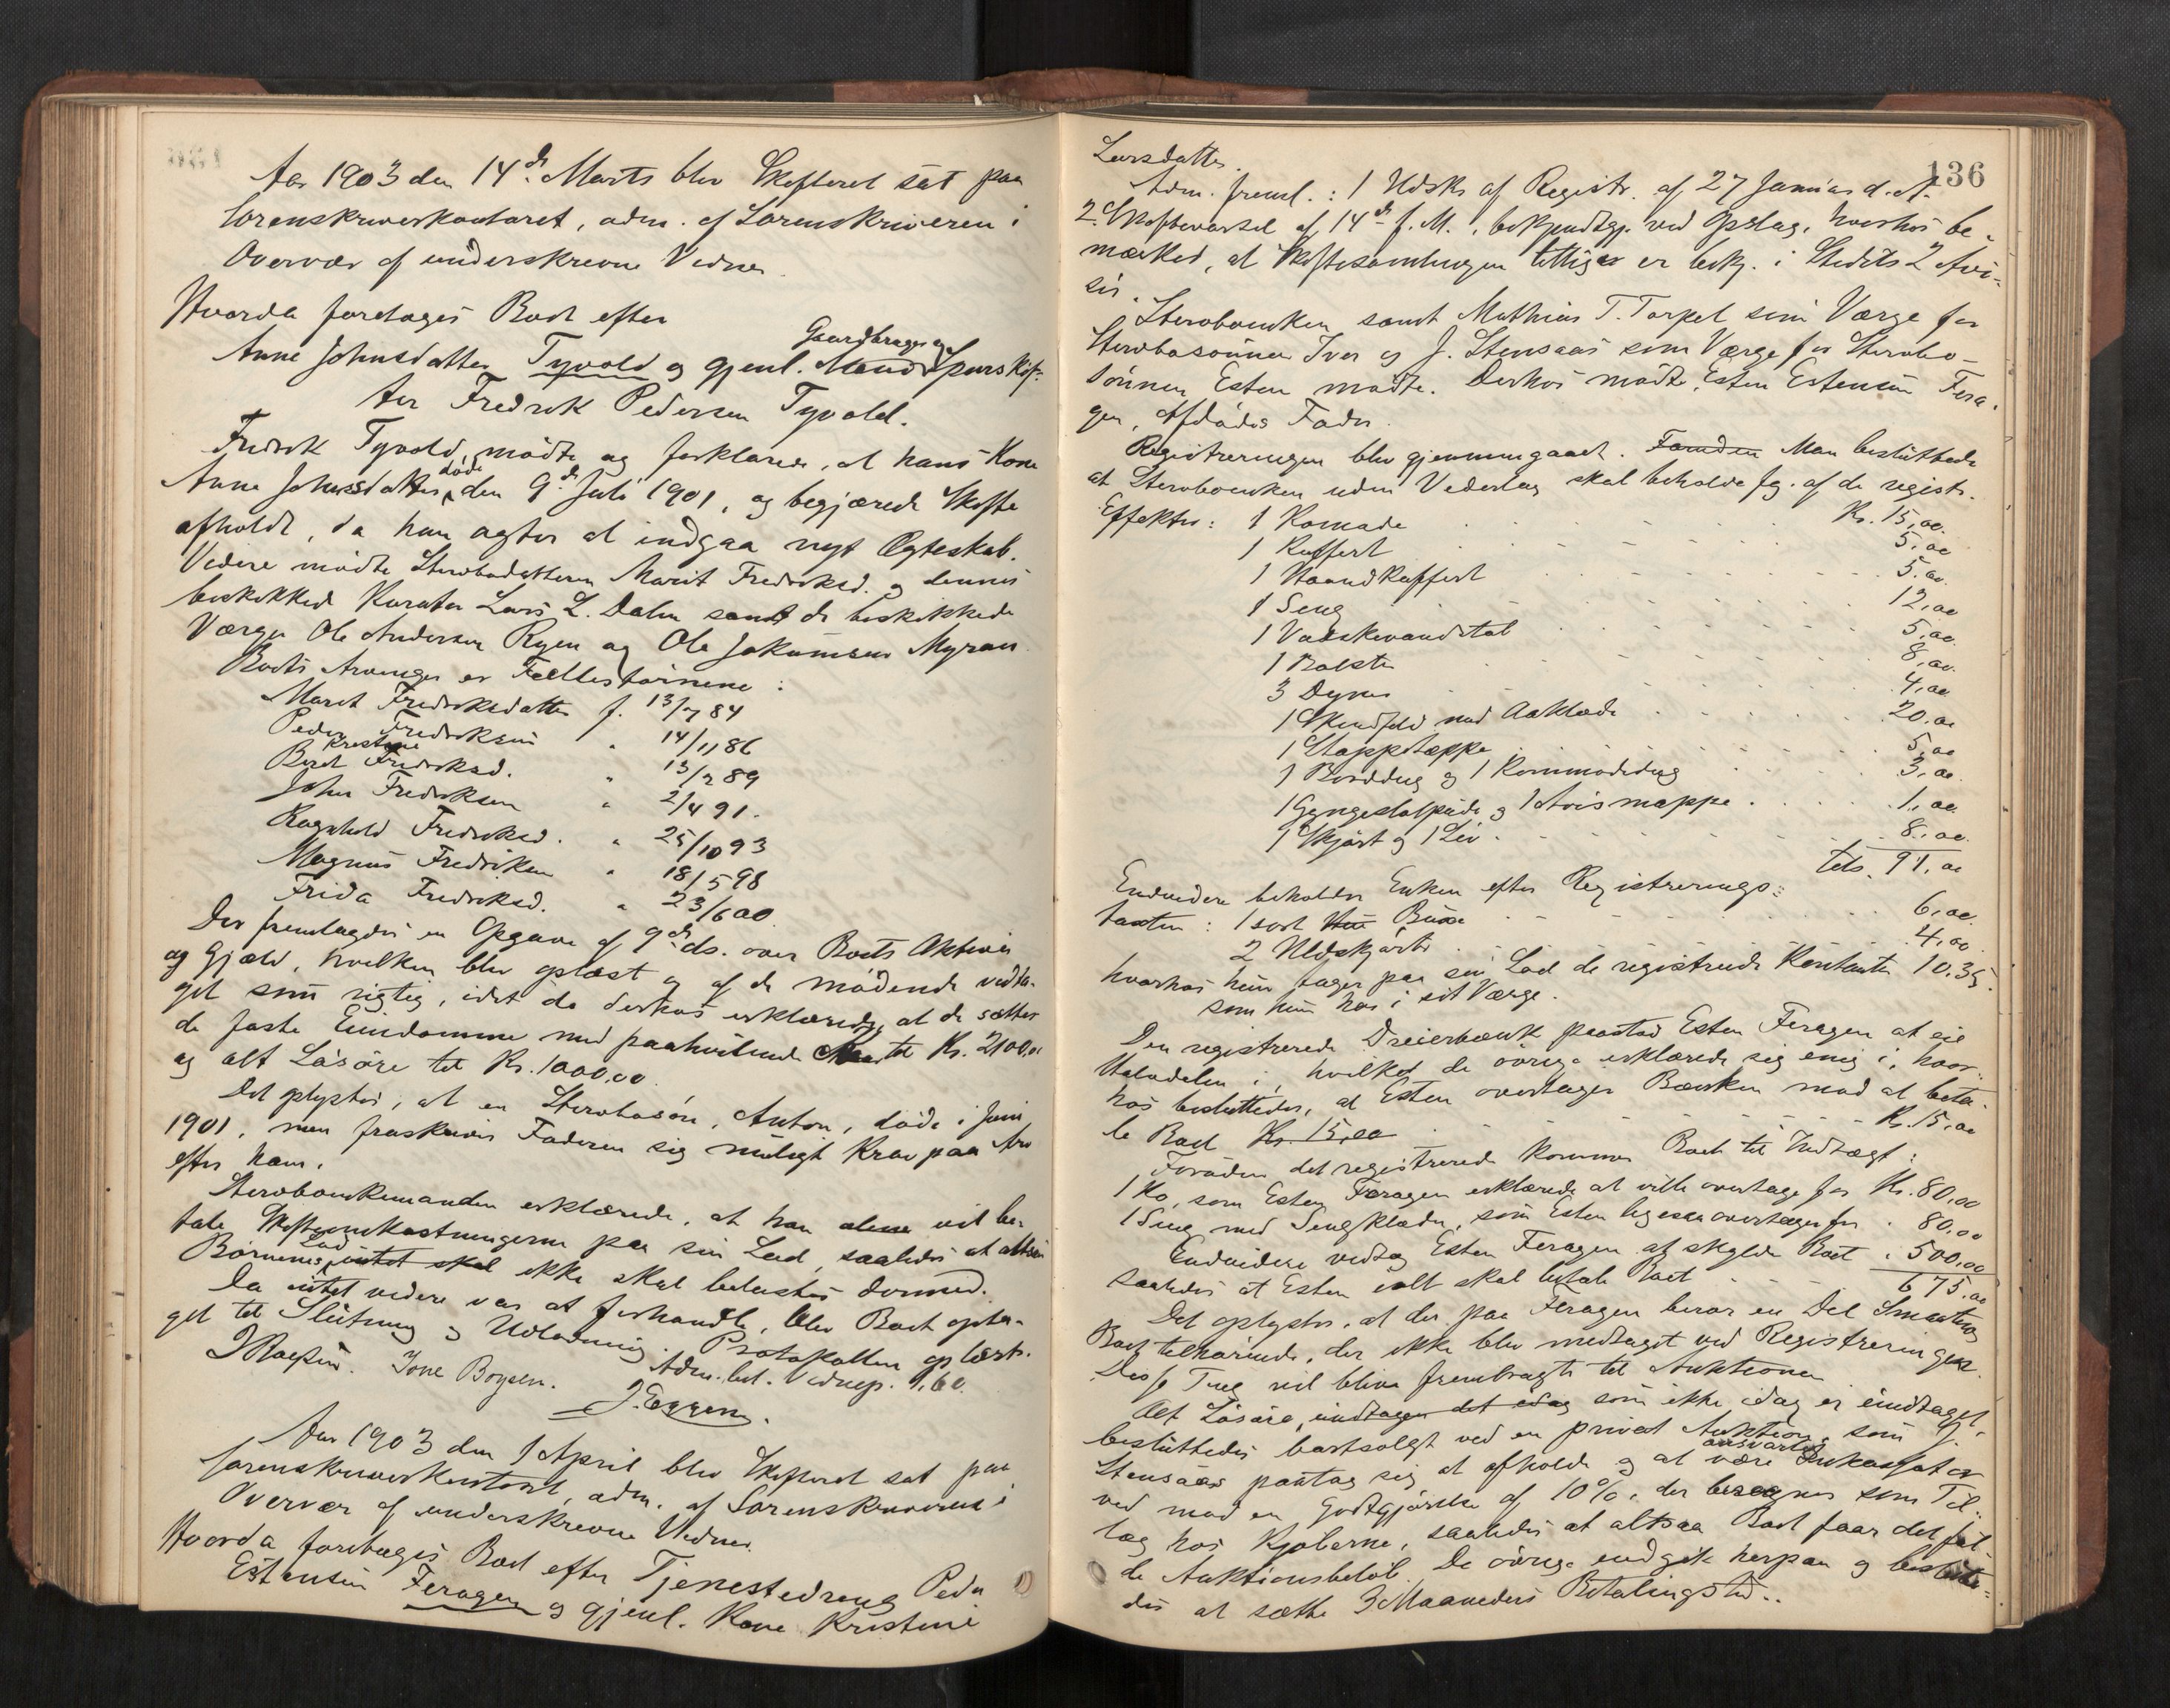 Aar 1903 den 14de Marts blev Skifteret sat paa
Sorenskriverkontoret, adm. af Sorenskriveren i
Overvær af underskrevne Vidner.
Hvorda foretoges Boet efter
Gaardbruger og
Anne Johnsdatter Tyvold og gjenl. Mand Spurskif-
ter Fredrik Pedersen Tyvold.
Fredrik Tyvold mødte og forklarede, at hans Kone
Anne Johnsdatter døde den 9de Juli 1901, og begjærede Skifte
afholdt, da han agter at indgaa nyt Ægteskab.
Videre mødte Stervbodatteren Marit Fredriksd. og dennes
beskikkede Kurator Lars L. Dalen samt de beskikkede
Værger Ole Andersen Ryen og Ole Jokumsen Myran.
Boets Arvinger er Fællesbørnene:
Marit Fredriksdatter f. 13/7 84
Peder Fredriksen " 14/11 86
Kristine
Berit Fredriksd. " 13/2 89
John Fredriksen " 2/4 91.
Ragnhild Fredriksd. " 25/10 93
Magnus Fredriksen " 18/5 98
Frida Fredriksd. " 23/6 00
Der fremlagdes en Opgave af 9de ds. over Boets Aktiva
og Gjæld, hvilken blev oplæst og af de mødende vedta-
get som rigtig, idet de derhos erklærede, at de sætter
de faste Eiendomme med paahvilende til Kr. 2100,00
og alt Løsøre til Kr. 1000,00.
Det oplystes, at en Stervbosøn, Anton, døde i Juni
1901, men fraskrives Faderen sig muligt Krav paa Arv
efter ham.
Stervboenkemanden erklærede, at han alene vil be-
tale Skifteomkostningerne paa sin Lod, saaledes at altsaa
Børnenes Lod intet skal ikke skal belastes dermed.
Da intet videre var at forhandle, blev Boet opta-
get til Slutning og Udlodning. Protokollen oplæst.
Adm. lut. Vidnep. 1,60.
Tore Boysen.
J. Eggen.
Aar 1903 den 1 April blev Skifteret sat paa
Sorenskriverkontoret, adm. af Sorenskriveren i
Overvær af underskrevne Vidner.
Hvorda foretoges Boet efter Tjenestedreng Peder
Estensen Feragen og gjenl. Kone Kristine
136
Larsdatter.
Adm. freml.: 1 Udskr. af Registr. af 27 Januar d. A.
2. Skiftevarsel af 14de f. M., bekjendtgj. ved Opslag, hvorhos be-
mærked, at Skiftesamlingen tillige er bekj. i Stedets 2 Avi-
ser.
Stervboenken samt Mathias T. Torpet som Værge for
Stervbosønnen Iver og J. Stensaas som Værge for Stervbo-
sønnen Esten mødte. Derhos mødte Esten Estensen Fera-
gen, Afdødes Fader.
Registreringen blev gjennemgaaet. Man besluttede
at Stervboenken uden Vederlag skal beholde flg. af de registr.
Effekter: 1 Komode Kr. 15,00.
1 Kuffert 5,00
1 Haandkuffert 5,00.
1 Seng 12,00
1 Vaskevandstol 5,00.
1 Bolster 8,00.
3 Dyner 4,00
1 Skindfeld med Aaklæde 20,00
1 Stoppetæppe 5,00
1 Borddug og 1 Kommodedug 3,00.
1 Gyngestolpude og 1 Avismappe 1,00
1 Skjørt og 1 Liv 8,00.
tils. 91,00
Endvidere beholder Enken efter Registrerings-
taxten: 1 sort Buxe 6,00.
2 Uldskjørter 4,00
hvorhos hun tager paa sin Lod de registrerede Kontanter 10,35.
som hun har i sit Værge.
Den registrerede Dreierbænk paastod Esten Feragen at eie
Halvdelen i, hvilket de øvrige erklærede sig enig i, hvor-
hos besluttedes, at Esten overtager Bænken mod at beta-
le Boet Kr. 15,00 Kr. 15,00
Foruden det registrerede kommer Boet til Indtægt:
1 Ko, som Esten Feragen erklærede at ville overtage for Kr. 80,00
1 Seng med Sengklæder, som Esten ligesaa overtager for " 80,00
Endvidere vedtog Esten Feragen at skylde Boet " 500,00
saaledes at Esten ialt skal betale Boet 675,00
Det oplystes, at der paa Feragen beror en Del Smaating
Boet tilhørende, der ikke blev medtaget ved Registreringen.
Disse Ting vil blive frembragt til Auktionen.
Alt Løsøre, undtagen det idag som ikke idag er undtaget,
besluttedes bortsolgt ved en privat Auktion, som J.
Stensaas paatog sig at afholde og at være ansvarlig Inkassator
ved mod en Godtgjørelse af 10%, der beregnes som Til-
læg hos Kjøberne, saaledes at altsaa Boet faar det ful-
de Auktionsbeløb. De øvrige indgik herpaa og beslutte-
des at sætte 3 Maaneders Betalingstid.